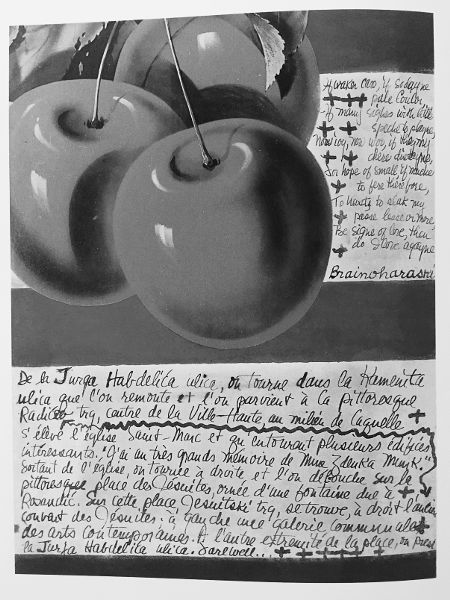 pale Coulor,
if many sighes with little
speche to playne,
Now ioy, now woo, if
chere
for hope of small, if muche
to fere therefore,
To haste, to slak my
passe lesse or more
be signe of love, then
do I love agayne
Brainoharaski
De la Jurga Habdelića ulica, on tourne dans la Kamenita
ulica que l'on remonte et l'on parvient à la pittoresque
Radićev trg, centre de la Ville-Haute, au milieu de laquelle
s'élève l'église Saint-Marc et qu'entourent plusieurs édifices
intéressants. "J'ai un très grands mémoire de Mme Zdenka Munk."
Sortant de l'église, on tourne à droite et l'on débouche sur la
pittoresque place des Jésuites, ornée d'une fontaine due à
Rosandić. Sur cette place Jesuitski trg, se trouve, à droit l'ancien
couvent des Jésuites. à gauche une galerie communale
des arts contemporaines. A l'autre extremité de la place, on prend
la Jurja Habdelića ulica. Farewell...